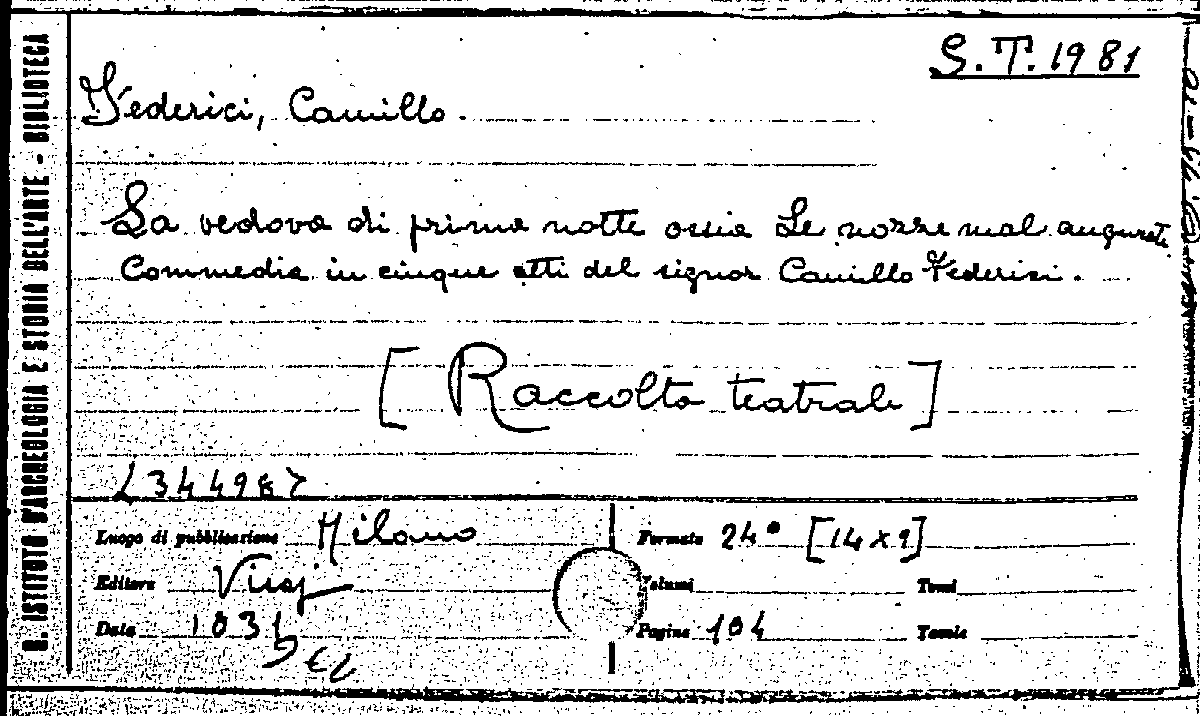 S.T. 1981
R. ISTITUTO D'ARCHEOLOGIA E STORIA DELL'ARTE - BIBLIOTECA
Federici, Camillo.
La vedova di prima notte ossia Le nozze mal augurate.
Commedia in cinque atti del signor Camillo Federici.
[Raccolta teatrale]
L344987
Luogo di pubblicazione Milano
Formato 24° [14x9]
Editore Visaj
Volumi
Tomi
Data
Pagine 104